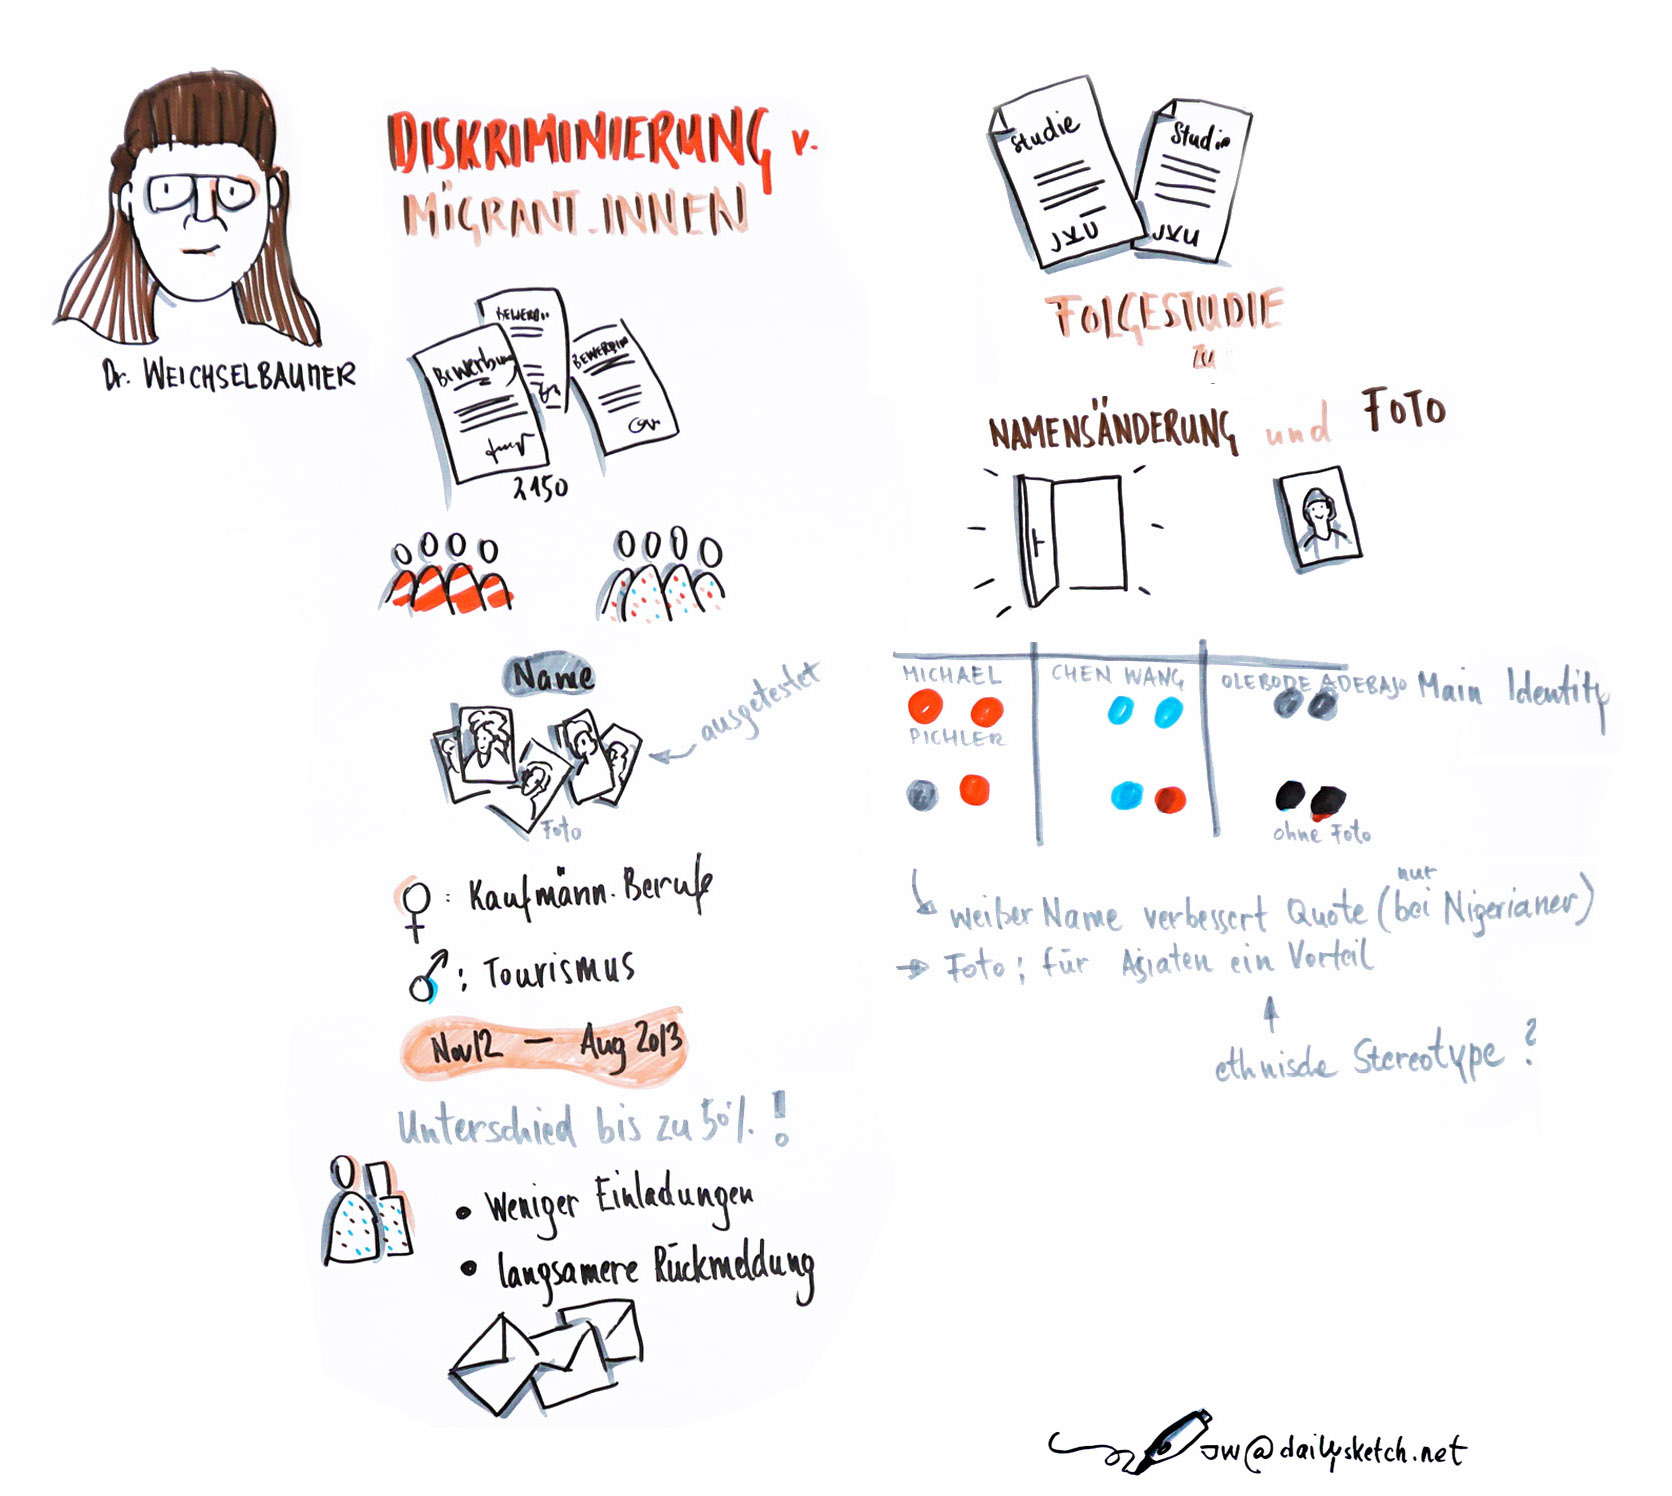 Dr. WEICHSELBAUMER
DISKRIMINIERUNG v.
MIGRANT_INNEN
BEWERBU
Bewerbung
BEWERBUN
2150
Name
ausgetestet
Foto
♀: Kaufmänn. Berufe
♂: Tourismus
Nov12 — Aug 2013
Unterschied bis zu 50%!
• Weniger Einladungen
• langsamere Rückmeldung
Studie
JKU
Studie
JKU
FOLGESTUDIE
ZU
NAMENSÄNDERUNG und FOTO
MICHAEL
PICHLER
CHEN WANG
OLEBODE ADEBAJO
Main Identity
ohne Foto
weißer Name verbessert Quote (nur bei Nigerianer)
→ Foto: für Asiaten ein Vorteil
ethnische Stereotype?
JW@dailysketch.net